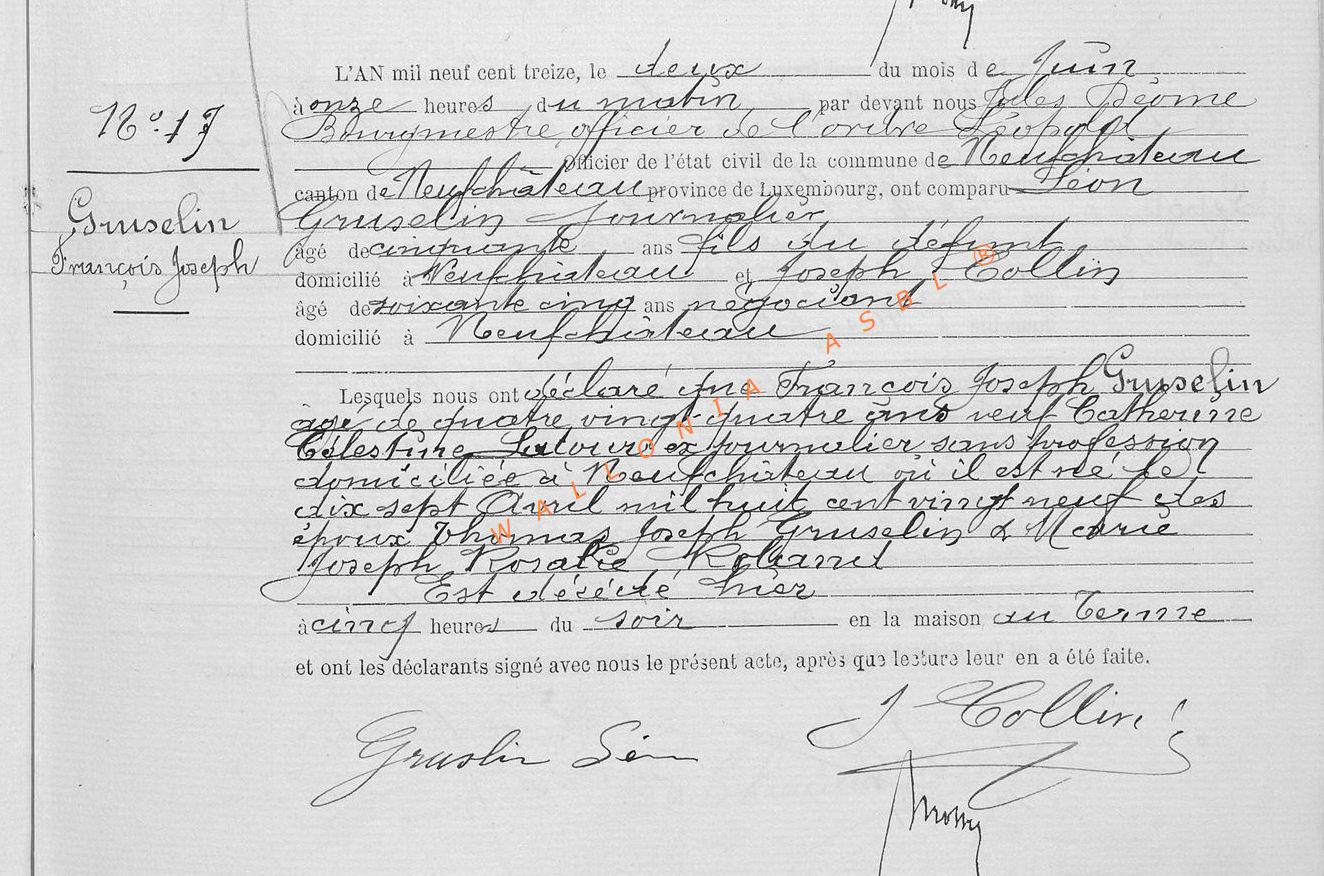 L'AN mil neuf cent treize, le deux du mois de Juin
N° 17
à onze heures du matin par devant nous Jules
Bourgmestre, officier de l'ordre Léopold
Officier de l'état civil de la commune de Neufchâteau
canton de Neufchâteau province de Luxembourg, ont comparu Léon
Gruselin
François Joseph
Gruselin Journalier
âgé de cinquante ans fils du défunt
domicilié à Neufchâteau et Joseph Collin
âgé de soixante cinq ans négociant
domicilié à Neufchâteau
Lesquels nous ont déclaré que François Joseph Gruselin
âgé de quatre vingt-quatre ans veuf Catherine
Célestine ex journalier sans profession
domiciliée à Neufchâteau où il est né le
dix sept Avril mil huit cent vingt neuf des
époux Thomas Joseph Gruselin & Marie
Joseph Rosalie
Est décédé hier
à cinq heures du soir en la maison au Terme
et ont les déclarants signé avec nous le présent acte, après que lecture leur en a été faite.
J Collin
Gruslin Léon
WALLONIA ASBL ®